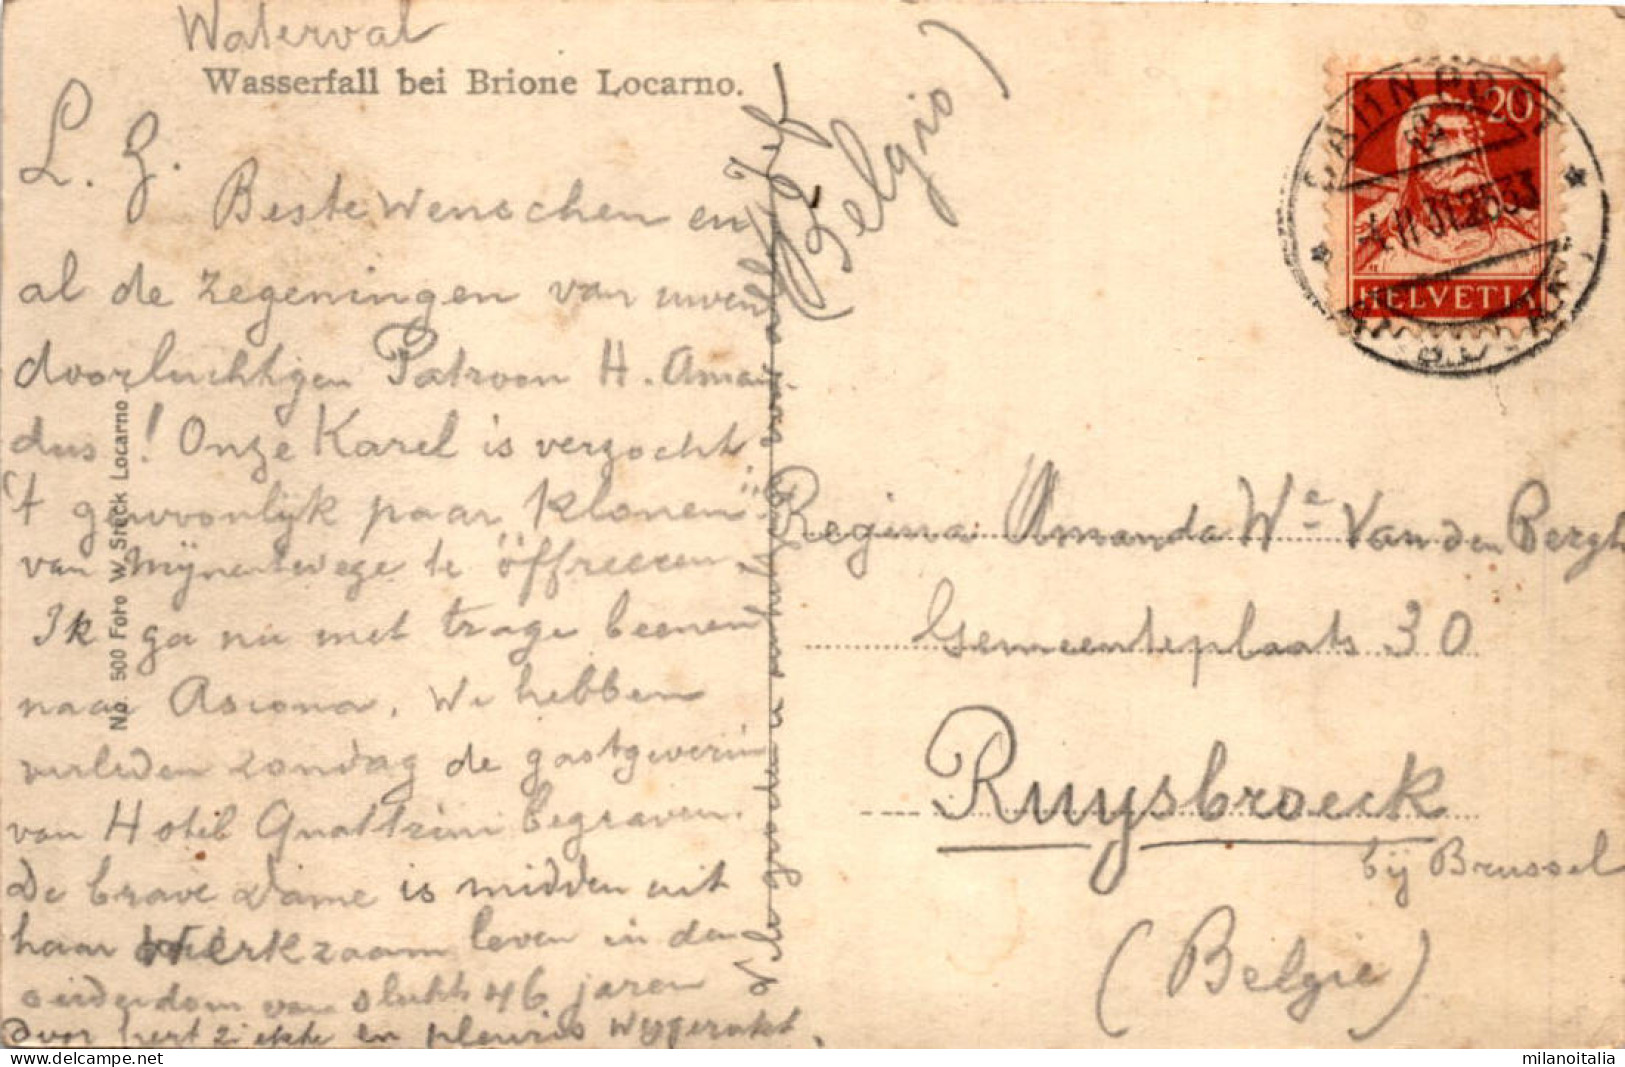 Waterval
Wasserfall bei Brione Locarno.
L. G.
Beste Wenschen en
al de zegeningen van uwen
doorluchtigen Patroon H. Aman-
dus! Onze Karel is verzocht
't gewoonlijk paar "klonen"
van mijnentwege te offreeren.
Ik ga nu met trage beenen
naar Ascona. We hebben
verleden zondag de gastgeverin
van Hotel Quattrini begraven.
De brave Dame is midden uit
haar werkzaam leven in den
ouderdom van slechts 46 jaren
door hertziekte en pleuris weggerukt.
Jef
(Belgio)
No. 500 Foto W. Steck Locarno
20
HELVETIA
BAHNPOST
Regina Amanda We Van den Bergh
Gemeenteplaats 30
Ruysbroeck
bij Brussel
(Belgie)
milanoitalia